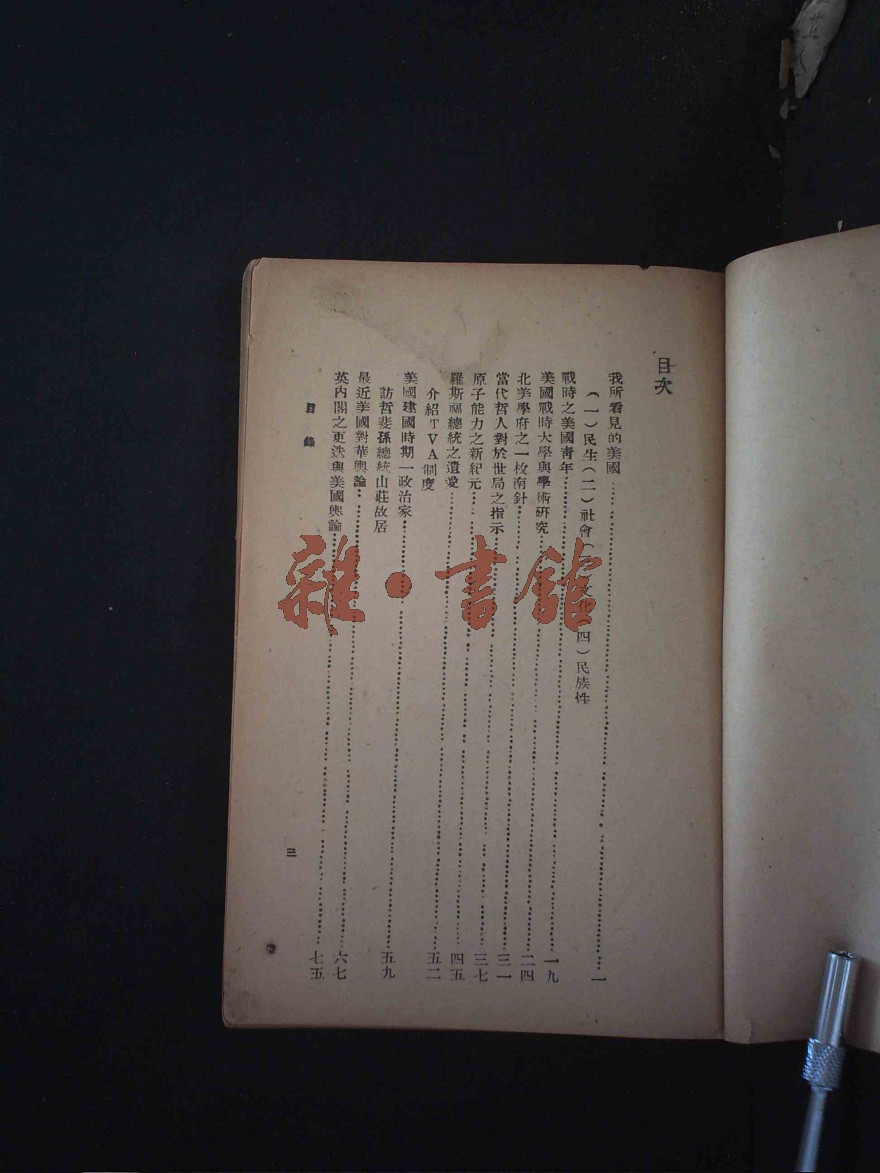 目次
我所看見的美國……一
（一）民生（二）社會（三）文化（四）民族性
戰時之美國青年……一九
美國戰時大學與學術研究……二四
北美學府之一枚南針……三一
當代哲人對於世局之指示……三七
原子能力之新紀元……四五
羅斯福總統之遺愛……五二
介紹TVA制度
美國建國時期一政治家……五九
訪哲斐孫總統山莊故居
最近美國對華輿論……六七
英內閣之更迭與美國輿論……七五
目錄
三
雜·書館